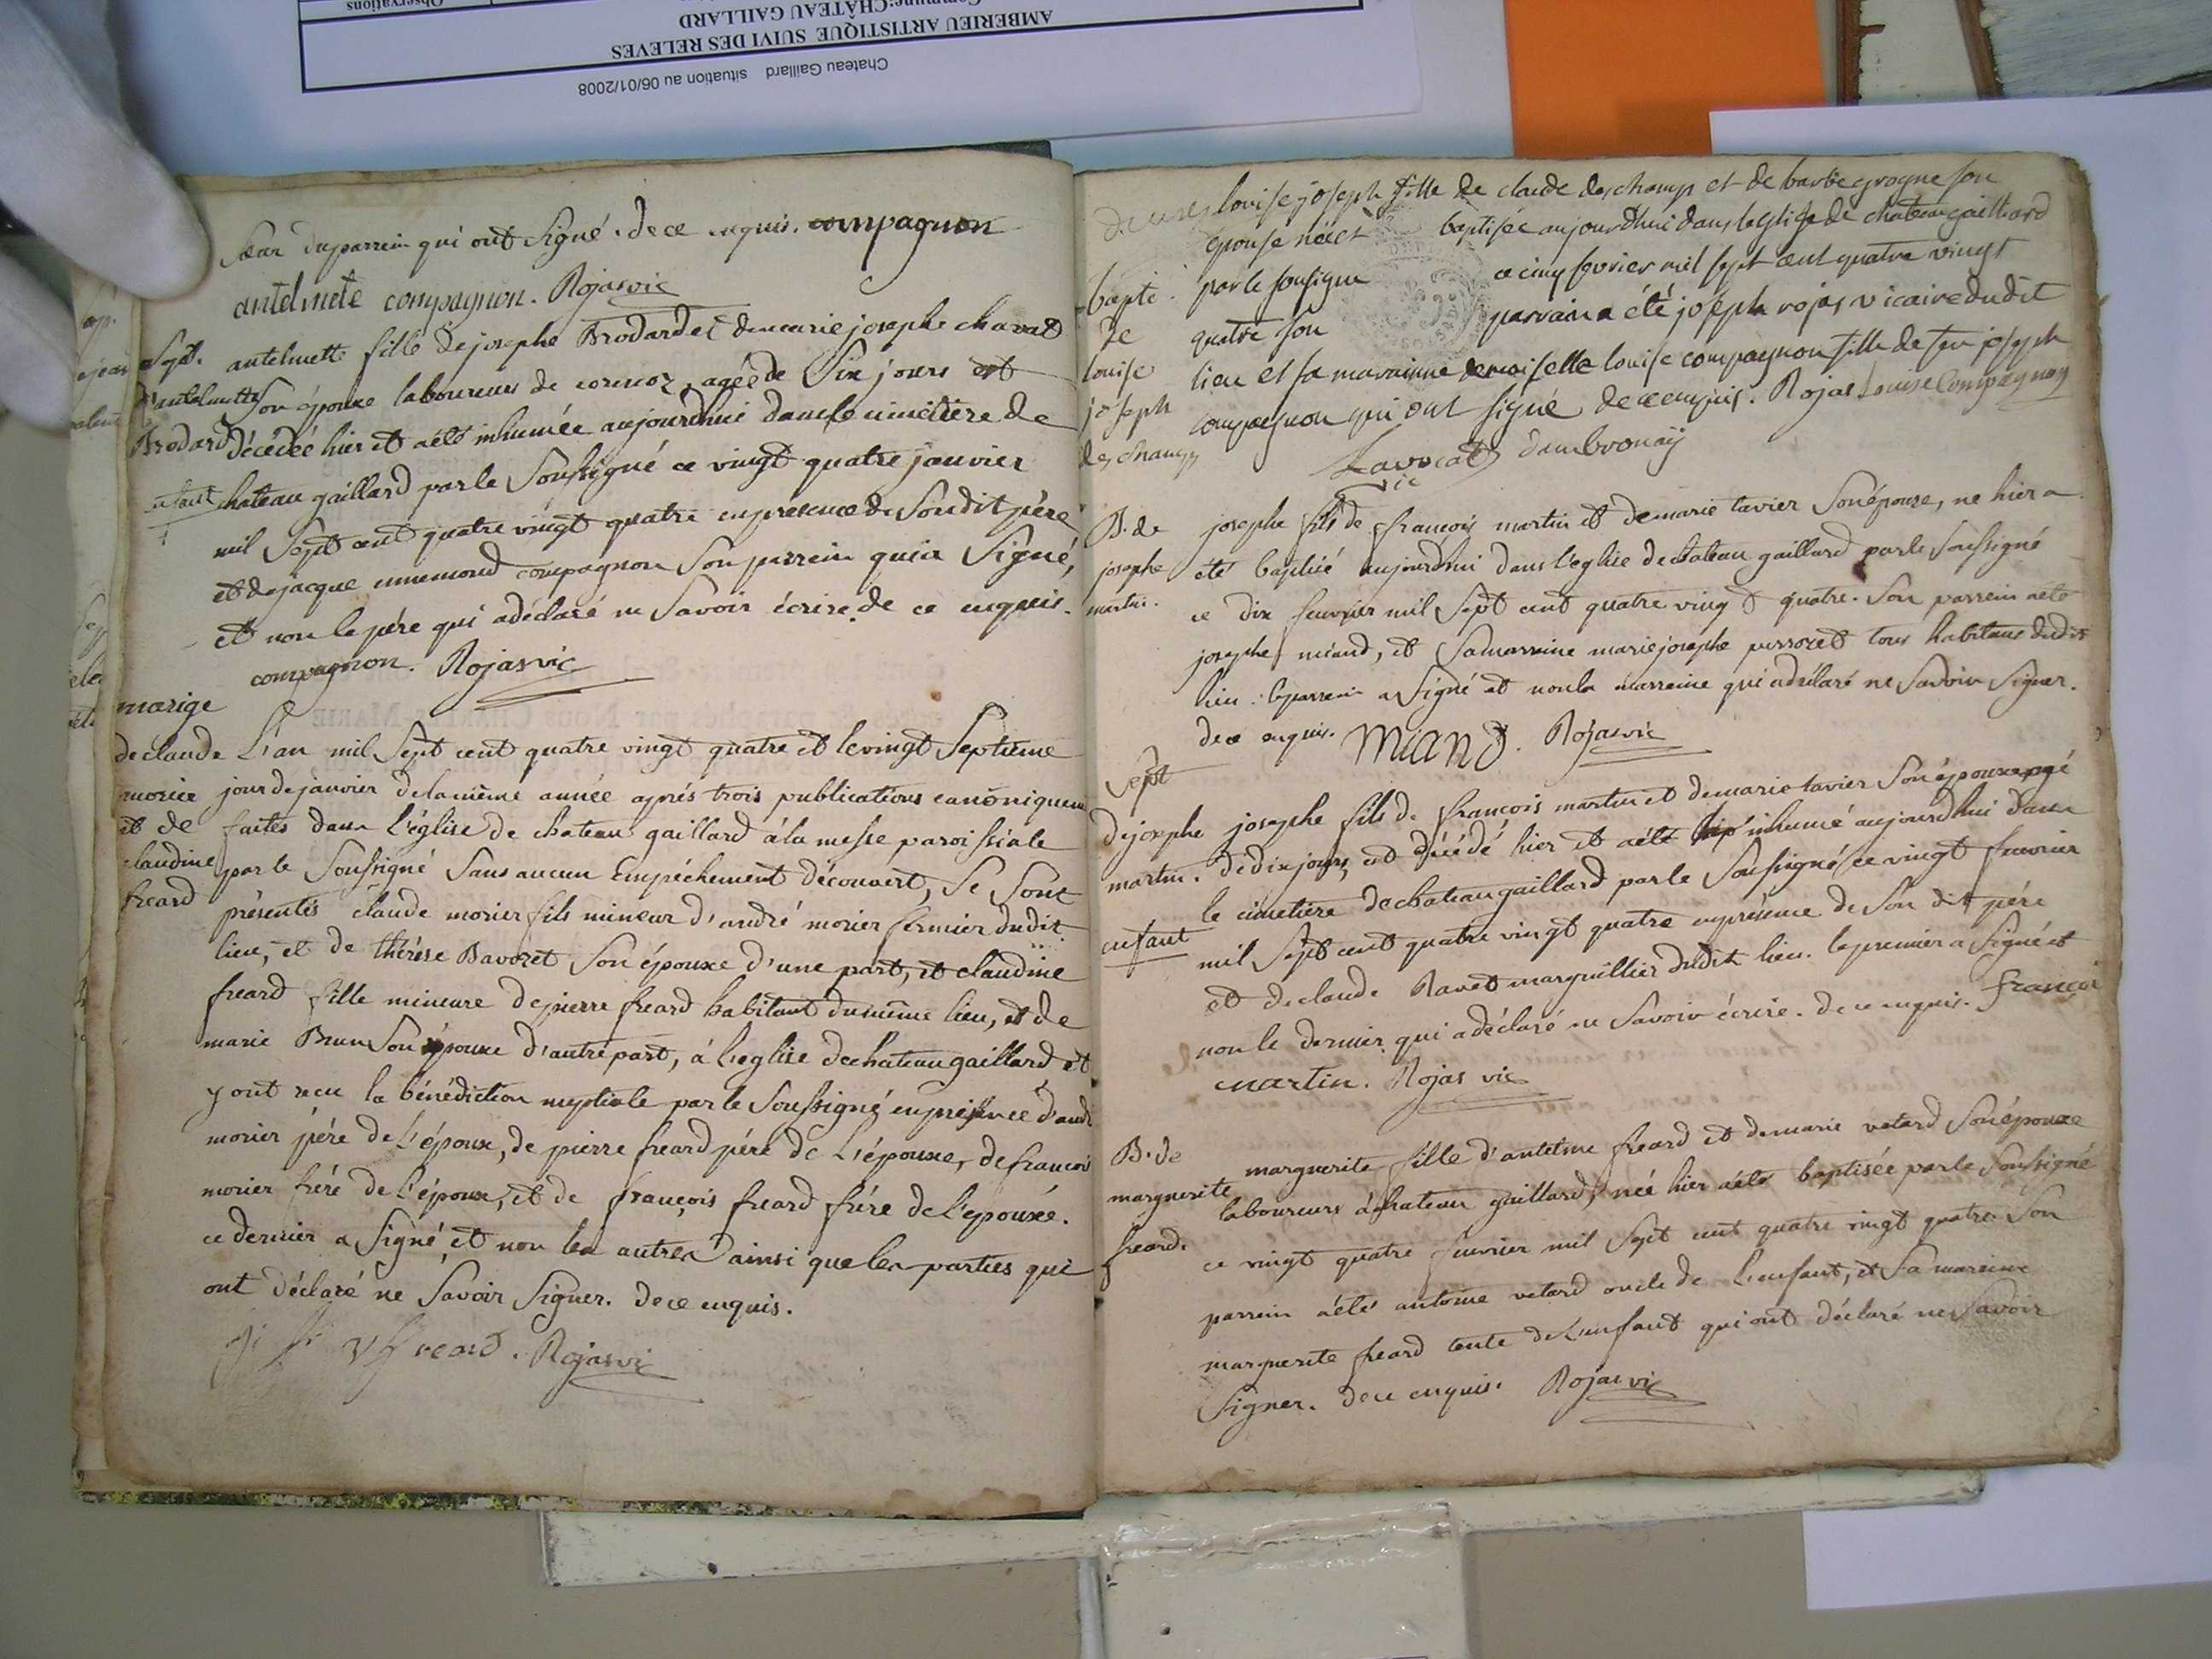 Chateau Gaillard situation au 06/01/2008
AMBERIEU ARTISTIQUE SUIVI DES RELEVES
Commune:CHÂTEAU GAILLARD
Observations
Sœur du parrein qui ont Signé. de ce enquis. compagnon
antelmete compagnon. Rojas vic
Sept.
d'antelmette
Brodard
enfant
antelmette fille de josephe Brodard et de marie josephe chavat
Son épouse laboureurs de cormoz, agée de Six jours est
décédée hier et a été inhumée aujourdhui dans le cimetière de
chateau gaillard par le Soussigné ce vingt quatre janvier
mil Sept cent quatre vingt quatre en présence de Son dit père
et de jacque ennemond compagnon Son parrein qui a Signé,
et non le père qui a déclaré ne Savoir écrire. de ce enquis.
compagnon. Rojas vic
marige
de claude
morier
et de
claudine
freard
L'an mil Sept cent quatre vingt quatre et le vingt Septieme
jour de janvier de la même année aprés trois publications canoniquem
faites dans l'église de chateau gaillard à la messe paroissiale
par le Soussigné Sans aucun Empéchement découvert, Se Sont
présentés claude morier fils mineur d'andré morier fermier dudit
lieu, et de thérèse Bavozet Son épouse d'une part, et claudine
freard fille mineure de pierre freard habitant du même lieu, et de
marie Brun Son épouse d'autre part, à l'eglise de chateau gaillard et
y ont recu la bénédiction nuptiale par le Soussigné en présence d'andr
morier pére de l'époux, de pierre freard pére de l'épouse, de francois
morier frére de l'époux, et de françois freard frére de l'epouse.
ce dernier a Signé, et non les autres ainsi que les parties qui
ont déclaré ne Savoir Signer. de ce enquis.
freard. Rojas vic
bapte.
de
louise
joseph
deschamps
louise joseph fille de claude deschamps et de barbe grogne son
épouse née et baptisée aujourdhui dans leglise de chateau gaillard
par le sousigne ce cinq fevrier mil sept cent quatre vingt
quatre son parrain a été joseph rojas vicaire dudit
lieu et sa marainne demoiselle louise compagnon fille de feu joseph
compagnon qui ont signé de ce enquis. Rojas Louise Compagnon
Lavocat dambronaÿ
vic
B. de
josephe
martin.
josephe fils de francois martin et de marie tavier Son épouse, ne hier a
été baptisé aujourdhui dans l'église de chateau gaillard par le Soussigné
ce dix fevrier mil Sept cent quatre vingt quatre. Son parrein a été
josephe miand, et Sa marraine marie josephe perrozet tous habitans dudit
lieu. le parrein a Signé et non la marreine qui a déclaré ne Savoir Signer.
de ce enquis. MIAND. Rojas vic
Sept
de josephe
martin.
enfant
josephe fils de francois martin et de marie tavier Son épouse agé
de dix jours est décédé hier et a été inhumé aujourdhui dans
le cimetière de chateau gaillard par le Soussigné ce vingt fevrier
mil Sept cent quatre vingt quatre en présence de Son dit pére
et de claude Ravet marguillier dudit lieu. le premier a Signé et
non le dernier qui a déclaré ne Savoir écrire. de ce enquis. françoi
martin. Rojas vic
B. de
marguerite
freard.
marguerite fille d'antelme freard et de marie vetard Son épouse
laboureurs à chateau gaillard, née hier a été baptisée par le Soussigné
ce vingt quatre fevrier mil Sept cent quatre vingt quatre. Son
parrein a été antoine vetard oncle de l'enfant, et Sa mareine
marguerite freard tente de L'enfant qui ont déclaré ne Savoir
Signer. de ce enquis. Rojas vic